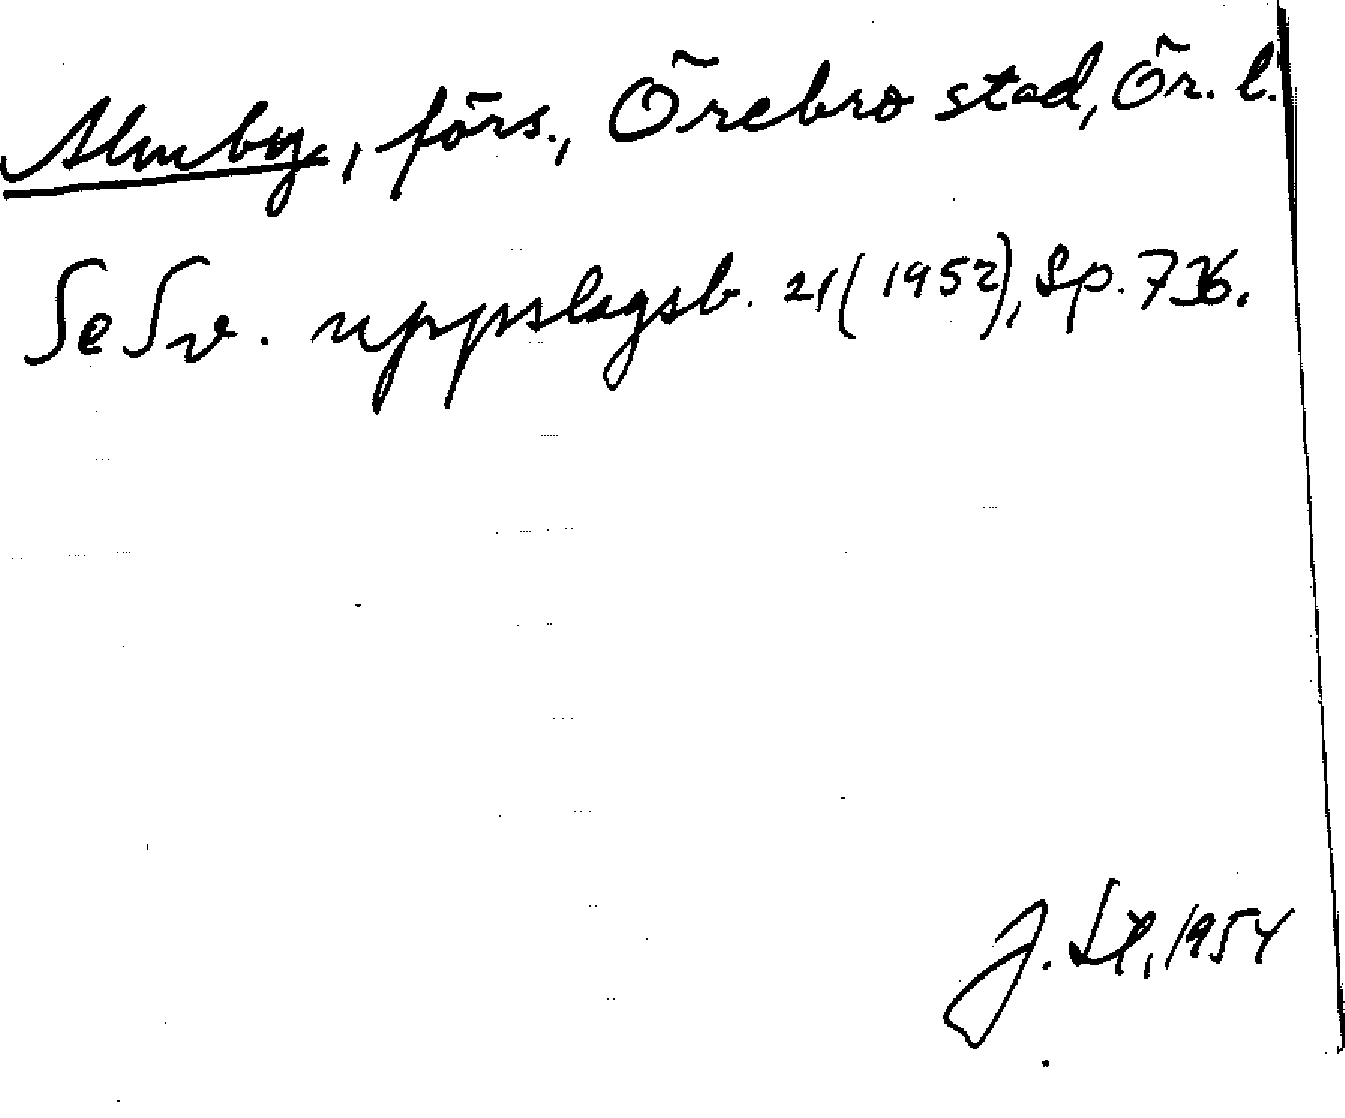 Almby, förs., Örebro stad, Ör. l.
Se Sv. uppslagsb. 21 (1952), Sp. 736.
J. 1954